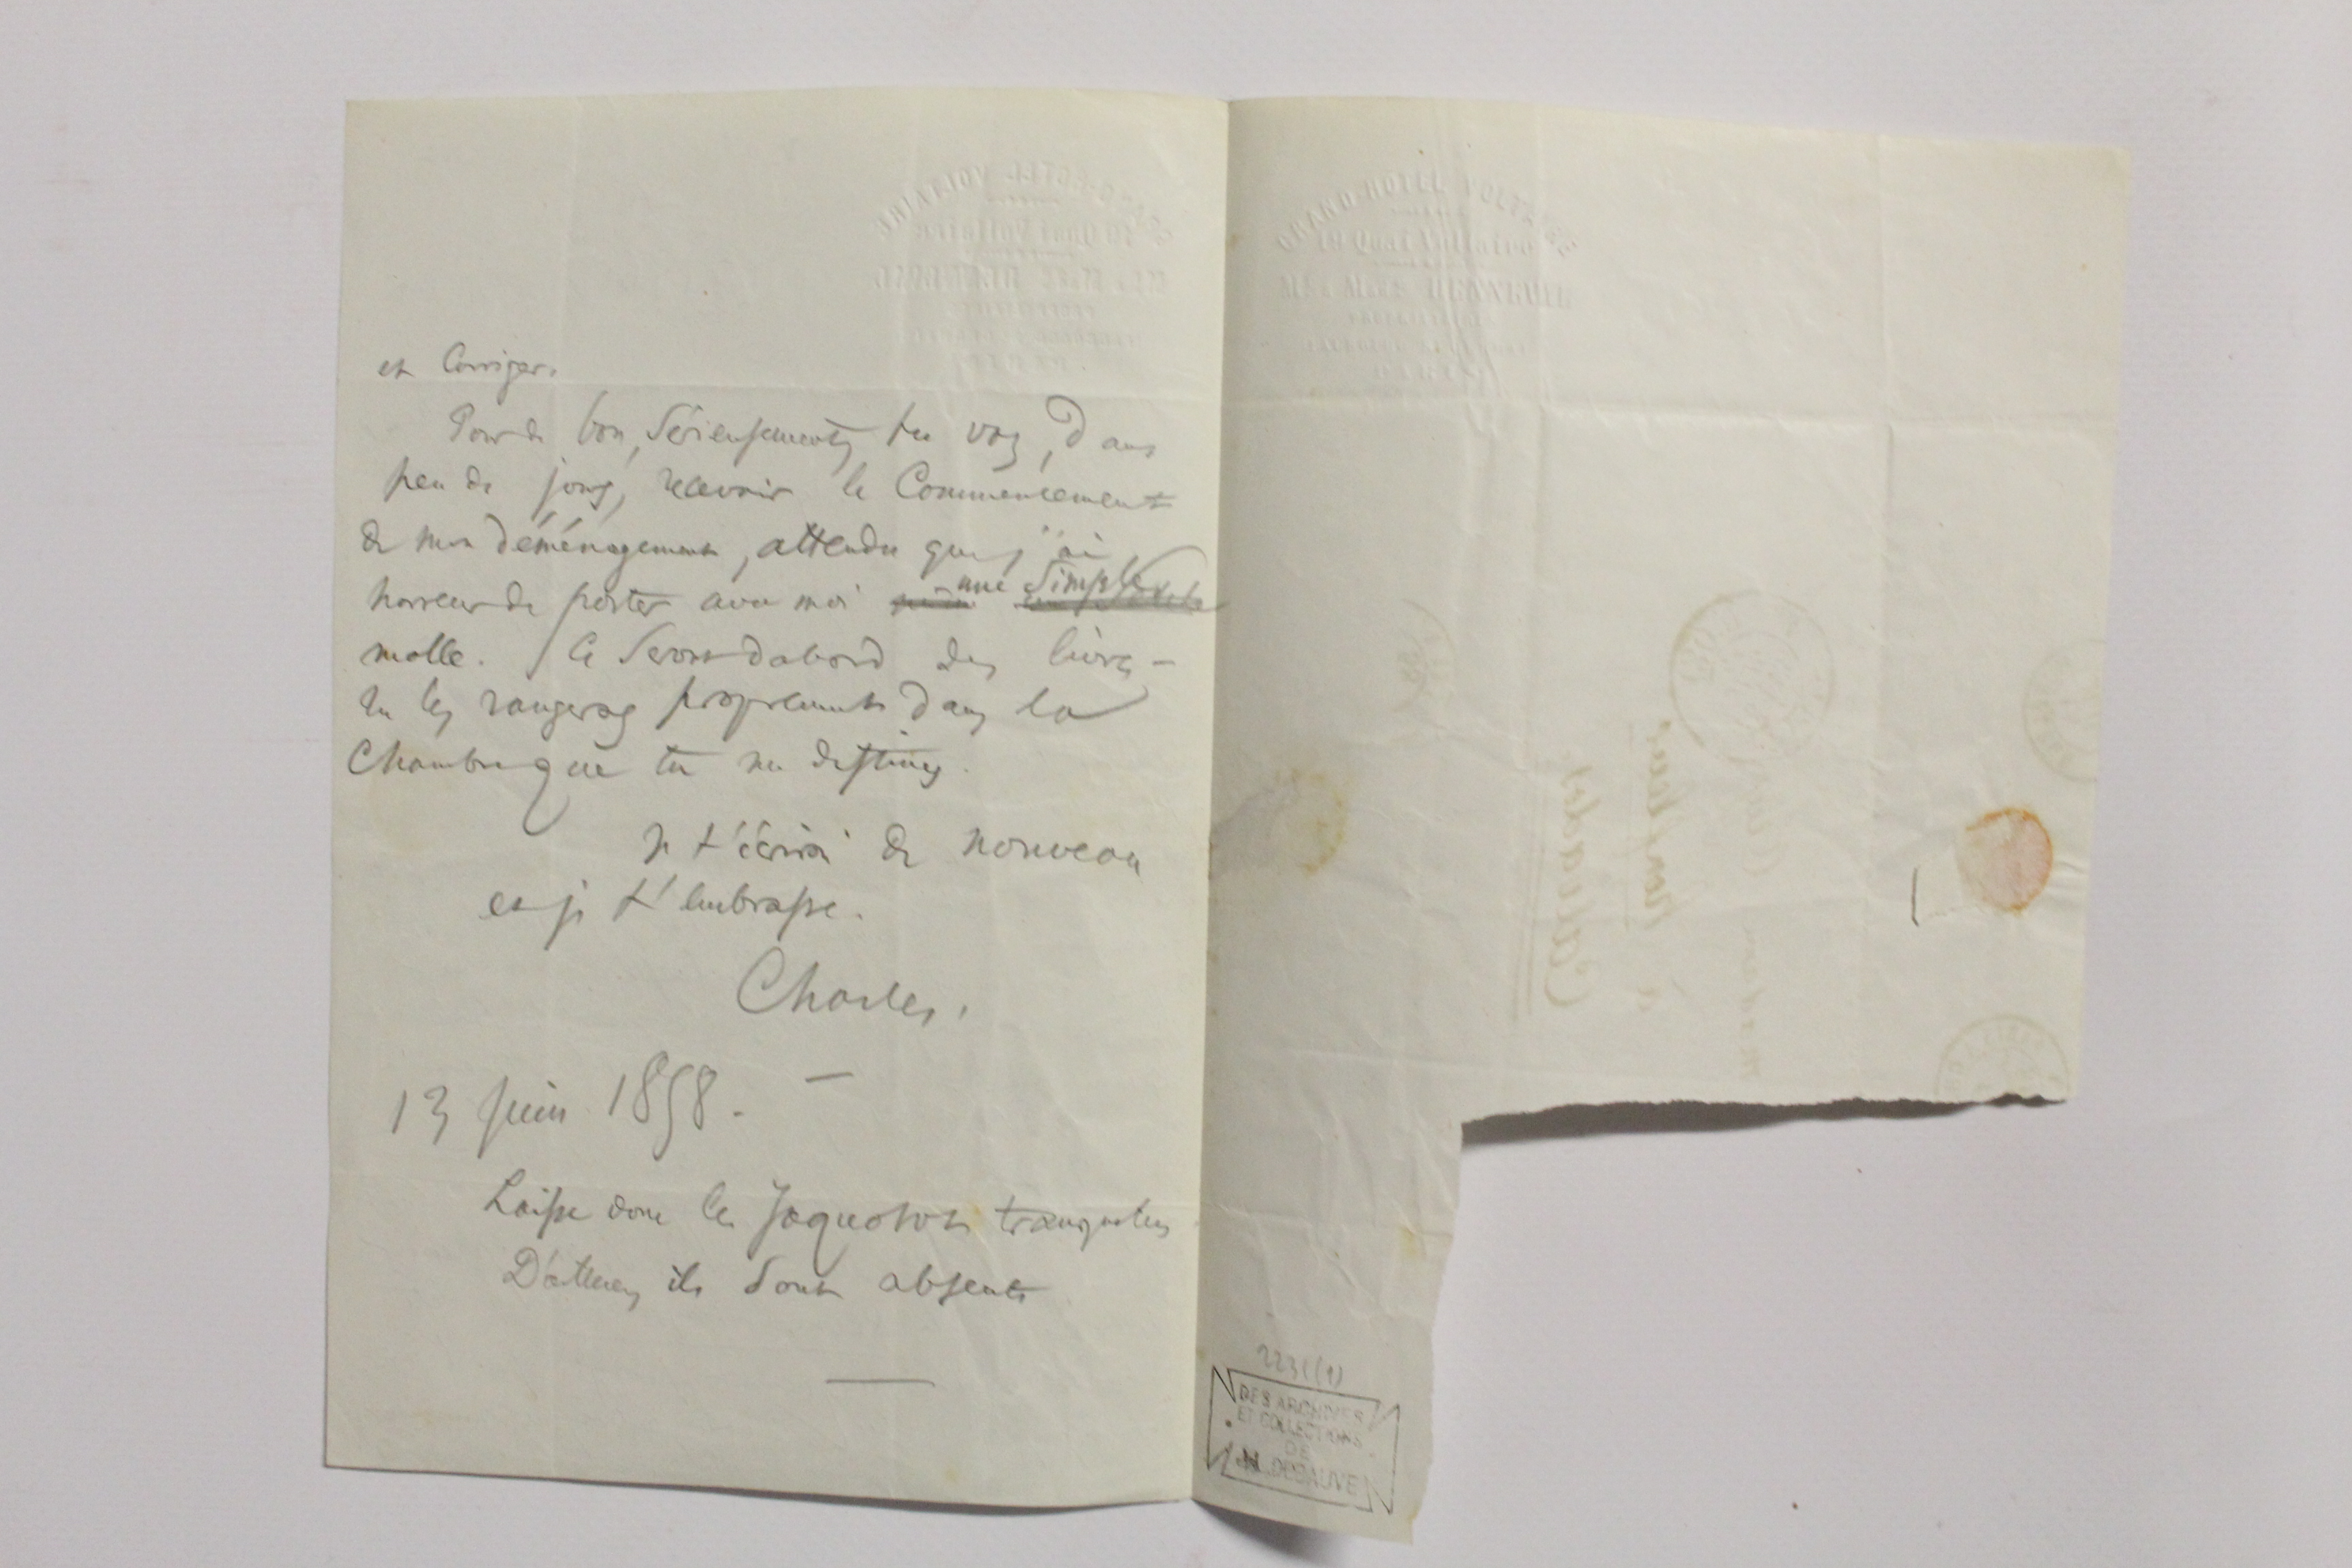 et Corriger.
Pour de bon, Sérieusement, tu vas, dans
peu de jours, recevoir le Commencement
de mon déménagement, attendu que j'ai
horreur de porter avec moi une Simple
malle. Ce Seront dabord des livres –
tu les rangeras proprement dans la
Chambre que tu me destines.
Je t'écrirai de nouveau
et je t'embrasse.
Charles.
13 Juin 1858. –
Laisse donc les Jaquotot tranquilles
D'ailleurs, ils Sont absents
GRAND-HOTEL VOLTAIRE
19 Quai Voltaire
PARIS
2231(1)
DES ARCHIVES
ET COLLECTIONS
DE
M. DEBAUVE